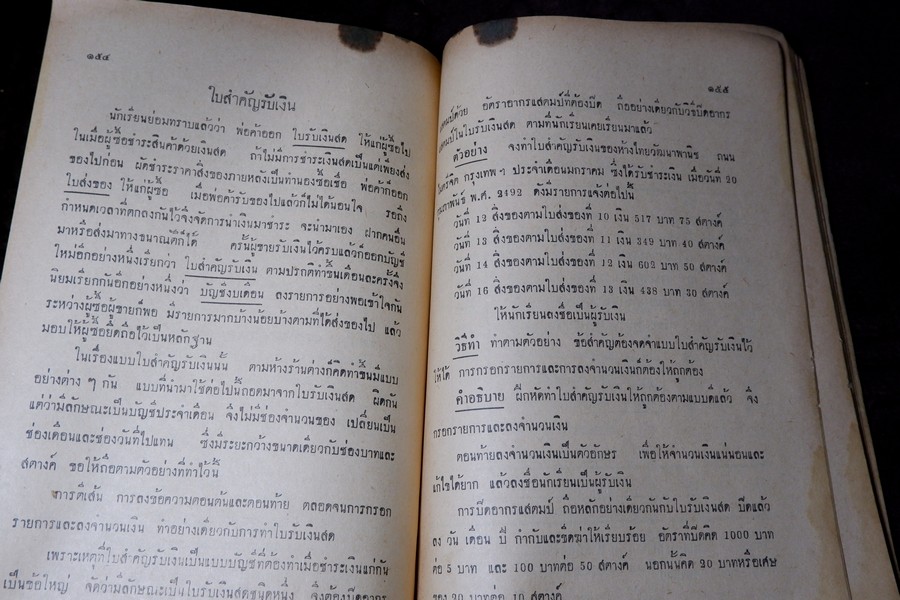 ๑๕๔
ใบสำคัญรับเงิน
นักเรียนย่อมทราบแล้วว่า พ่อค้าออก ใบรับเงินสด ให้แก่ผู้ซื้อไป
ในเมื่อผู้ซื้อชำระสินค้าด้วยเงินสด ถ้าไม่มีการชำระเงินสดเป็นแต่เพียงส่ง
ของไปก่อน ผัดชำระราคาสิ่งของภายหลังเป็นทำนองซื้อเชื่อ พ่อค้าก็ออก
ใบส่งของ ให้แก่ผู้ซื้อ เมื่อพ่อค้ารับของไปแล้วก็ไม่ได้นอนใจ รอถึง
กำหนดเวลาที่ตกลงกันไว้จึงจัดการนำเงินมาชำระ จะนำมาเอง ฝากคนอื่น
มาหรือส่งมาทางธนาณัติก็ได้ ครั้นผู้ขายรับเงินไว้ครบแล้วก็ออกบัญชี
ใหม่อีกอย่างหนึ่งเรียกว่า ใบสำคัญรับเงิน ตามปรกติทำขึ้นเดือนละครั้งจึง
นิยมเรียกกันอีกอย่างหนึ่งว่า บัญชีงบเดือน ลงรายการอย่างพอเข้าใจกัน
ระหว่างผู้ซื้อผู้ขายก็พอ มีรายการมากบ้างน้อยบ้างตามที่ได้ส่งของไป แล้ว
มอบให้ผู้ซื้อยึดถือไว้เป็นหลักฐาน
ในเรื่องแบบใบสำคัญรับเงินนั้น ตามห้างร้านต่างก็คิดทำขึ้นมีแบบ
อย่างต่าง ๆ กัน แบบที่นำมาใช้ต่อไปนี้ถอดมาจากใบรับเงินสด ผิดกัน
แต่ว่ามีลักษณะเป็นบัญชีประจำเดือน จึงไม่มีช่องจำนวนของ เปลี่ยนเป็น
ช่องเดือนและช่องวันที่ไปแทน ซึ่งมีระยะกว้างขนาดเดียวกับช่องบาทและ
สตางค์ ขอให้ถือตามตัวอย่างที่ทำไว้นี้
การตีเส้น การลงข้อความตอนต้นและตอนท้าย ตลอดจนการกรอก
รายการและลงจำนวนเงิน ทำอย่างเดียวกับการทำใบรับเงินสด
เพราะเหตุที่ใบสำคัญรับเงินเป็นแบบบัญชีที่ต้องทำเมื่อชำระเงินแก่กัน
เป็นข้อใหญ่ จัดว่ามีลักษณะเป็นใบรับเงินสดชนิดหนึ่ง จึงต้องปิดอากร
๑๕๕
แสตมป์ด้วย อัตราอากรแสตมป์ที่ต้องปิด ถืออย่างเดียวกับวิธีปิดอากร
แสตมป์ในใบรับเงินสด ตามที่นักเรียนเคยเรียนมาแล้ว
ตัวอย่าง จงทำใบสำคัญรับเงินของห้างไทยวัฒนาพานิช ถนน
กรุงเทพฯ ประจำเดือนมกราคม ซึ่งได้รับชำระเงิน เมื่อวันที่ 20
กุมภาพันธ์ พ.ศ. 2492 ดังมีรายการแจ้งต่อไปนี้
วันที่ 12 สิ่งของตามใบส่งของที่ 10 เงิน 517 บาท 75 สตางค์
วันที่ 13 สิ่งของตามใบส่งของที่ 11 เงิน 349 บาท 40 สตางค์
วันที่ 14 สิ่งของตามใบส่งของที่ 12 เงิน 602 บาท 50 สตางค์
วันที่ 16 สิ่งของตามใบส่งของที่ 13 เงิน 438 บาท 30 สตางค์
ให้นักเรียนลงชื่อเป็นผู้รับเงิน
วิธีทำ ทำตามตัวอย่าง ข้อสำคัญต้องจดจำแบบใบสำคัญรับเงินไว้
ให้ได้ การกรอกรายการและการลงจำนวนเงินก็ต้องให้ถูกต้อง
คำอธิบาย ฝึกหัดทำใบสำคัญรับเงินให้ถูกต้องตามแบบดีแล้ว จึง
กรอกรายการและลงจำนวนเงิน
ตอนท้ายลงจำนวนเงินเป็นตัวอักษร เพื่อให้จำนวนเงินแน่นอนและ
แก้ไขได้ยาก แล้วลงชื่อนักเรียนเป็นผู้รับเงิน
การปิดอากรแสตมป์ ถือหลักอย่างเดียวกันกับใบรับเงินสด ปิดแล้ว
ลง วัน เดือน ปี กำกับและขีดฆ่าให้เรียบร้อย อัตราที่ปิดคิด 1000 บาท
ต่อ 5 บาท และ 100 บาทต่อ 50 สตางค์ นอกนั้นคิด 20 บาทหรือเศษ
ของ 20 บาทต่อ 10 สตางค์